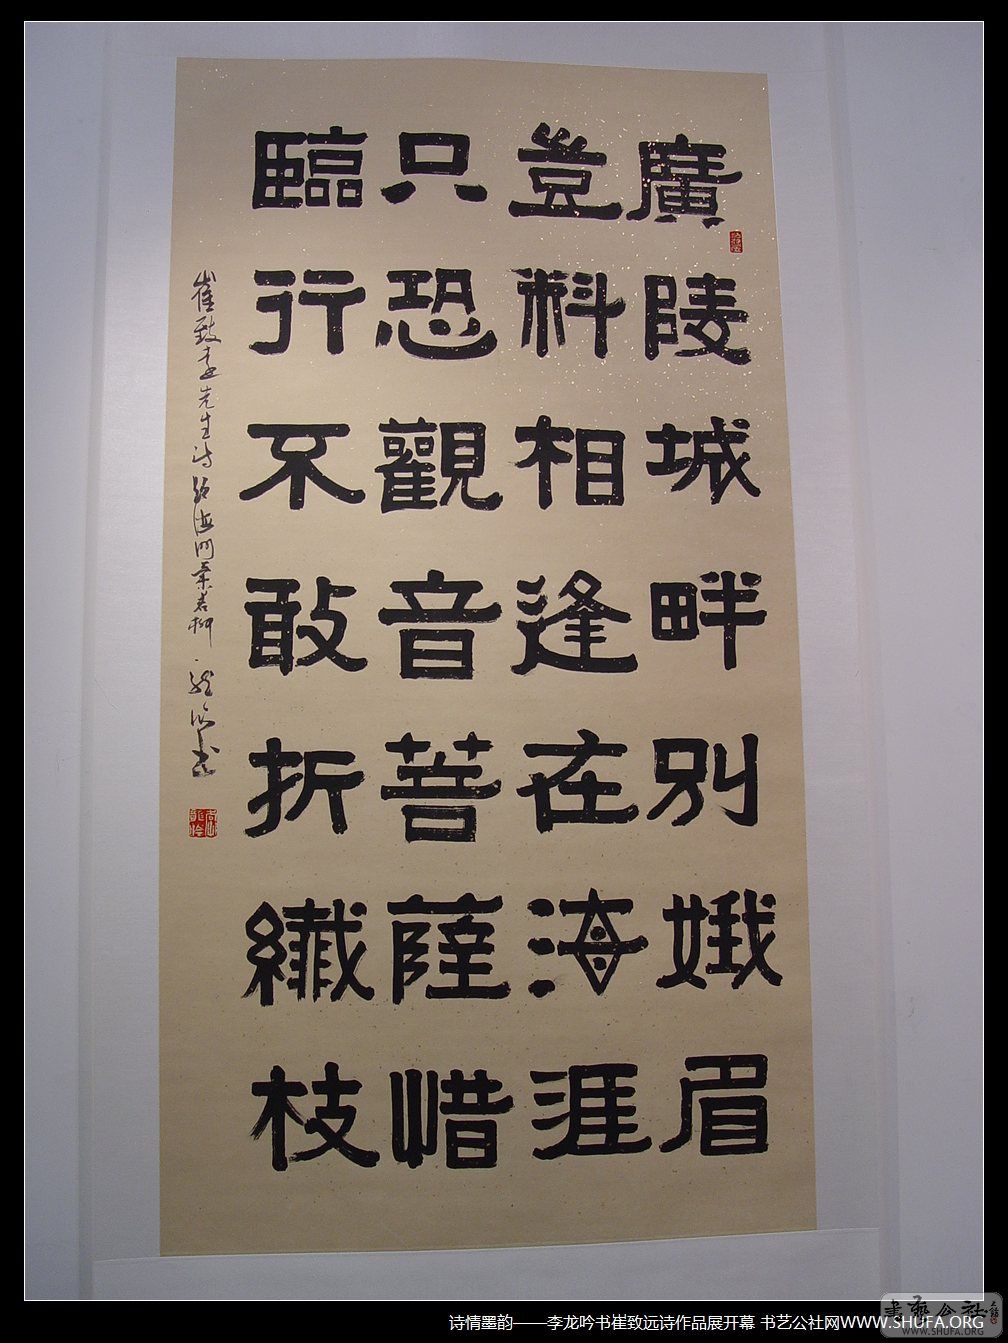 廣陵城畔別娥眉
豈料相逢在海涯
只恐觀音菩薩惜
臨行不敢折纖枝
崔致遠先生詩題海門蘭若柳 龍吟書
诗情墨韵——李龙吟书崔致远诗作品展开幕 书艺公社网WWW.SHUFA.ORG
書藝公社
WWW.SHUFA.ORG